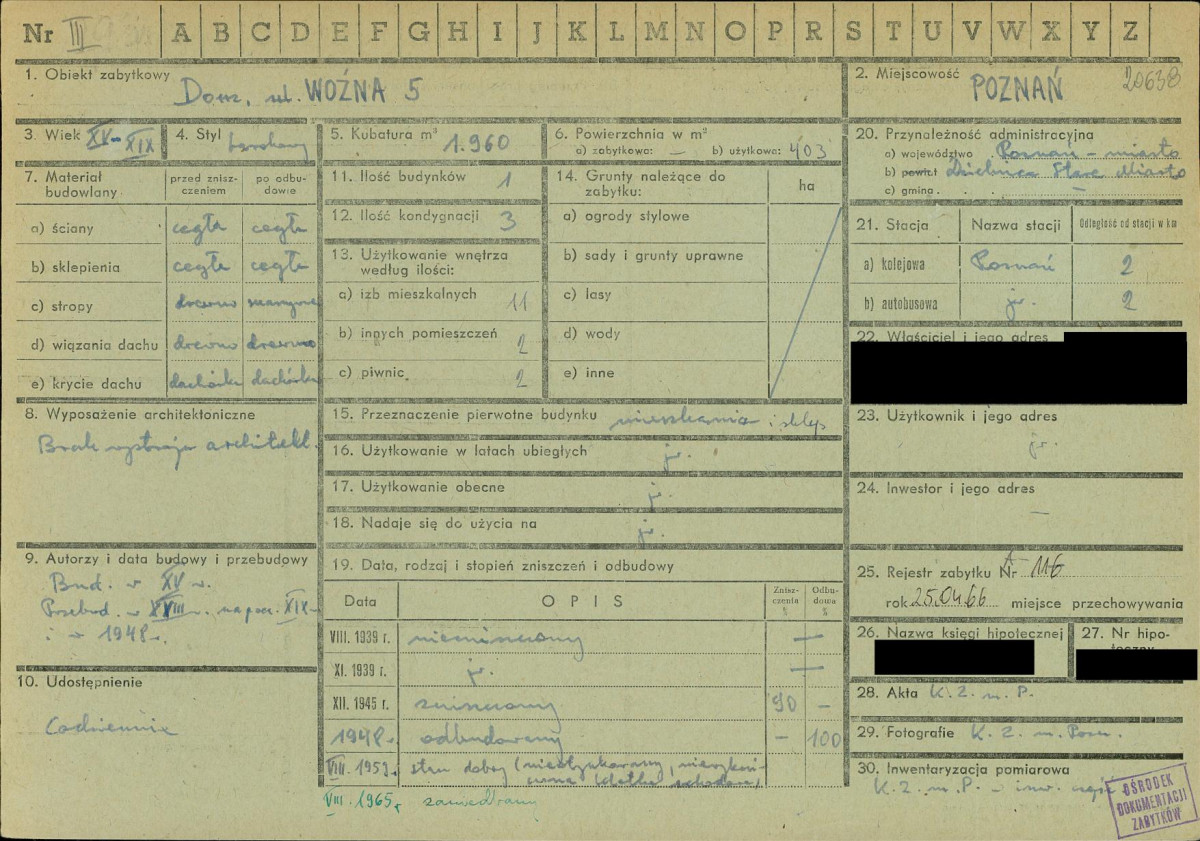 Nr III A B C D E F G H I J K L M N O P R S T U V W X Y Z
1. Obiekt zabytkowy
Dom, ul. WOŹNA 5
2. Miejscowość 20638
POZNAŃ
3. Wiek XV-XIX
4. Styl
5. Kubatura m³
1.960
6. Powierzchnia w m²
a) zabytkowa: — b) użytkowa: 403
7. Materiał budowlany
przed zniszczeniem
po odbudowie
a) ściany cegła cegła
b) sklepienia cegła cegła
c) stropy drewno
d) wiązania dachu drewno drewno
e) krycie dachu dachówka dachówka
8. Wyposażenie architektoniczne
Brak wystroju architekt.
9. Autorzy i data budowy i przebudowy
Bud. w XV w.
Przebud. w XVIII w. na pocz. XIX
i w 1948 r.
10. Udostępnienie
Codziennie
11. Ilość budynków 1
12. Ilość kondygnacji 3
13. Użytkowanie wnętrza
według ilości:
a) izb mieszkalnych 11
b) innych pomieszczeń 2
c) piwnic 2
14. Grunty należące do
zabytku:
ha
a) ogrody stylowe
b) sady i grunty uprawne
c) lasy
d) wody
e) inne
15. Przeznaczenie pierwotne budynku mieszkania i sklep
16. Użytkowanie w latach ubiegłych jw.
17. Użytkowanie obecne jw.
18. Nadaje się do użycia na jw.
19. Data, rodzaj i stopień zniszczeń i odbudowy
Data OPIS Zniszczenia % Odbudowa %
VIII. 1939 r. niezniszczony —
XI. 1939 r. jw. —
XII. 1945 r. zniszczony 90 —
1948 r. odbudowany — 100
VIII. 1959 r. stan dobry (nieotynkowany,
klatka schodowa)
VIII. 1965 r.
20. Przynależność administracyjna
a) województwo Poznań - miasto
b) powiat Dzielnica Stare Miasto
c) gmina —
21. Stacja Nazwa stacji Odległość od stacji w km
a) kolejowa Poznań 2
b) autobusowa jw. 2
22. Właściciel i jego adres
23. Użytkownik i jego adres
jw.
24. Inwestor i jego adres
—
25. Rejestr zabytku Nr A-116
rok 25.04.66 miejsce przechowywania
26. Nazwa księgi hipotecznej
27. Nr hipoteczny
28. Akta K. Z. m. P.
29. Fotografie K. Z. m. Pozn.
30. Inwentaryzacja pomiarowa
K. Z. m. P. - inw. część
OŚRODEK
DOKUMENTACJI
ZABYTKÓW